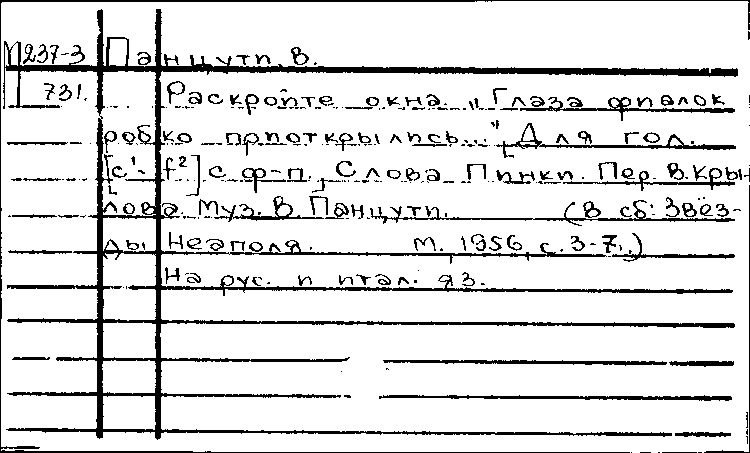 М237-3 Панцути В.
731. Раскройте окна. „Глаза фиалок
робко приоткрылись...", Для гол.
[c¹- f²] с ф-п., Слова Пинки. Пер. В. Кры-
лова. Муз. В. Панцути. (В сб: Звёз-
ды Неаполя. М., 1956, с. 3-7.)
На рус. и итал. яз.